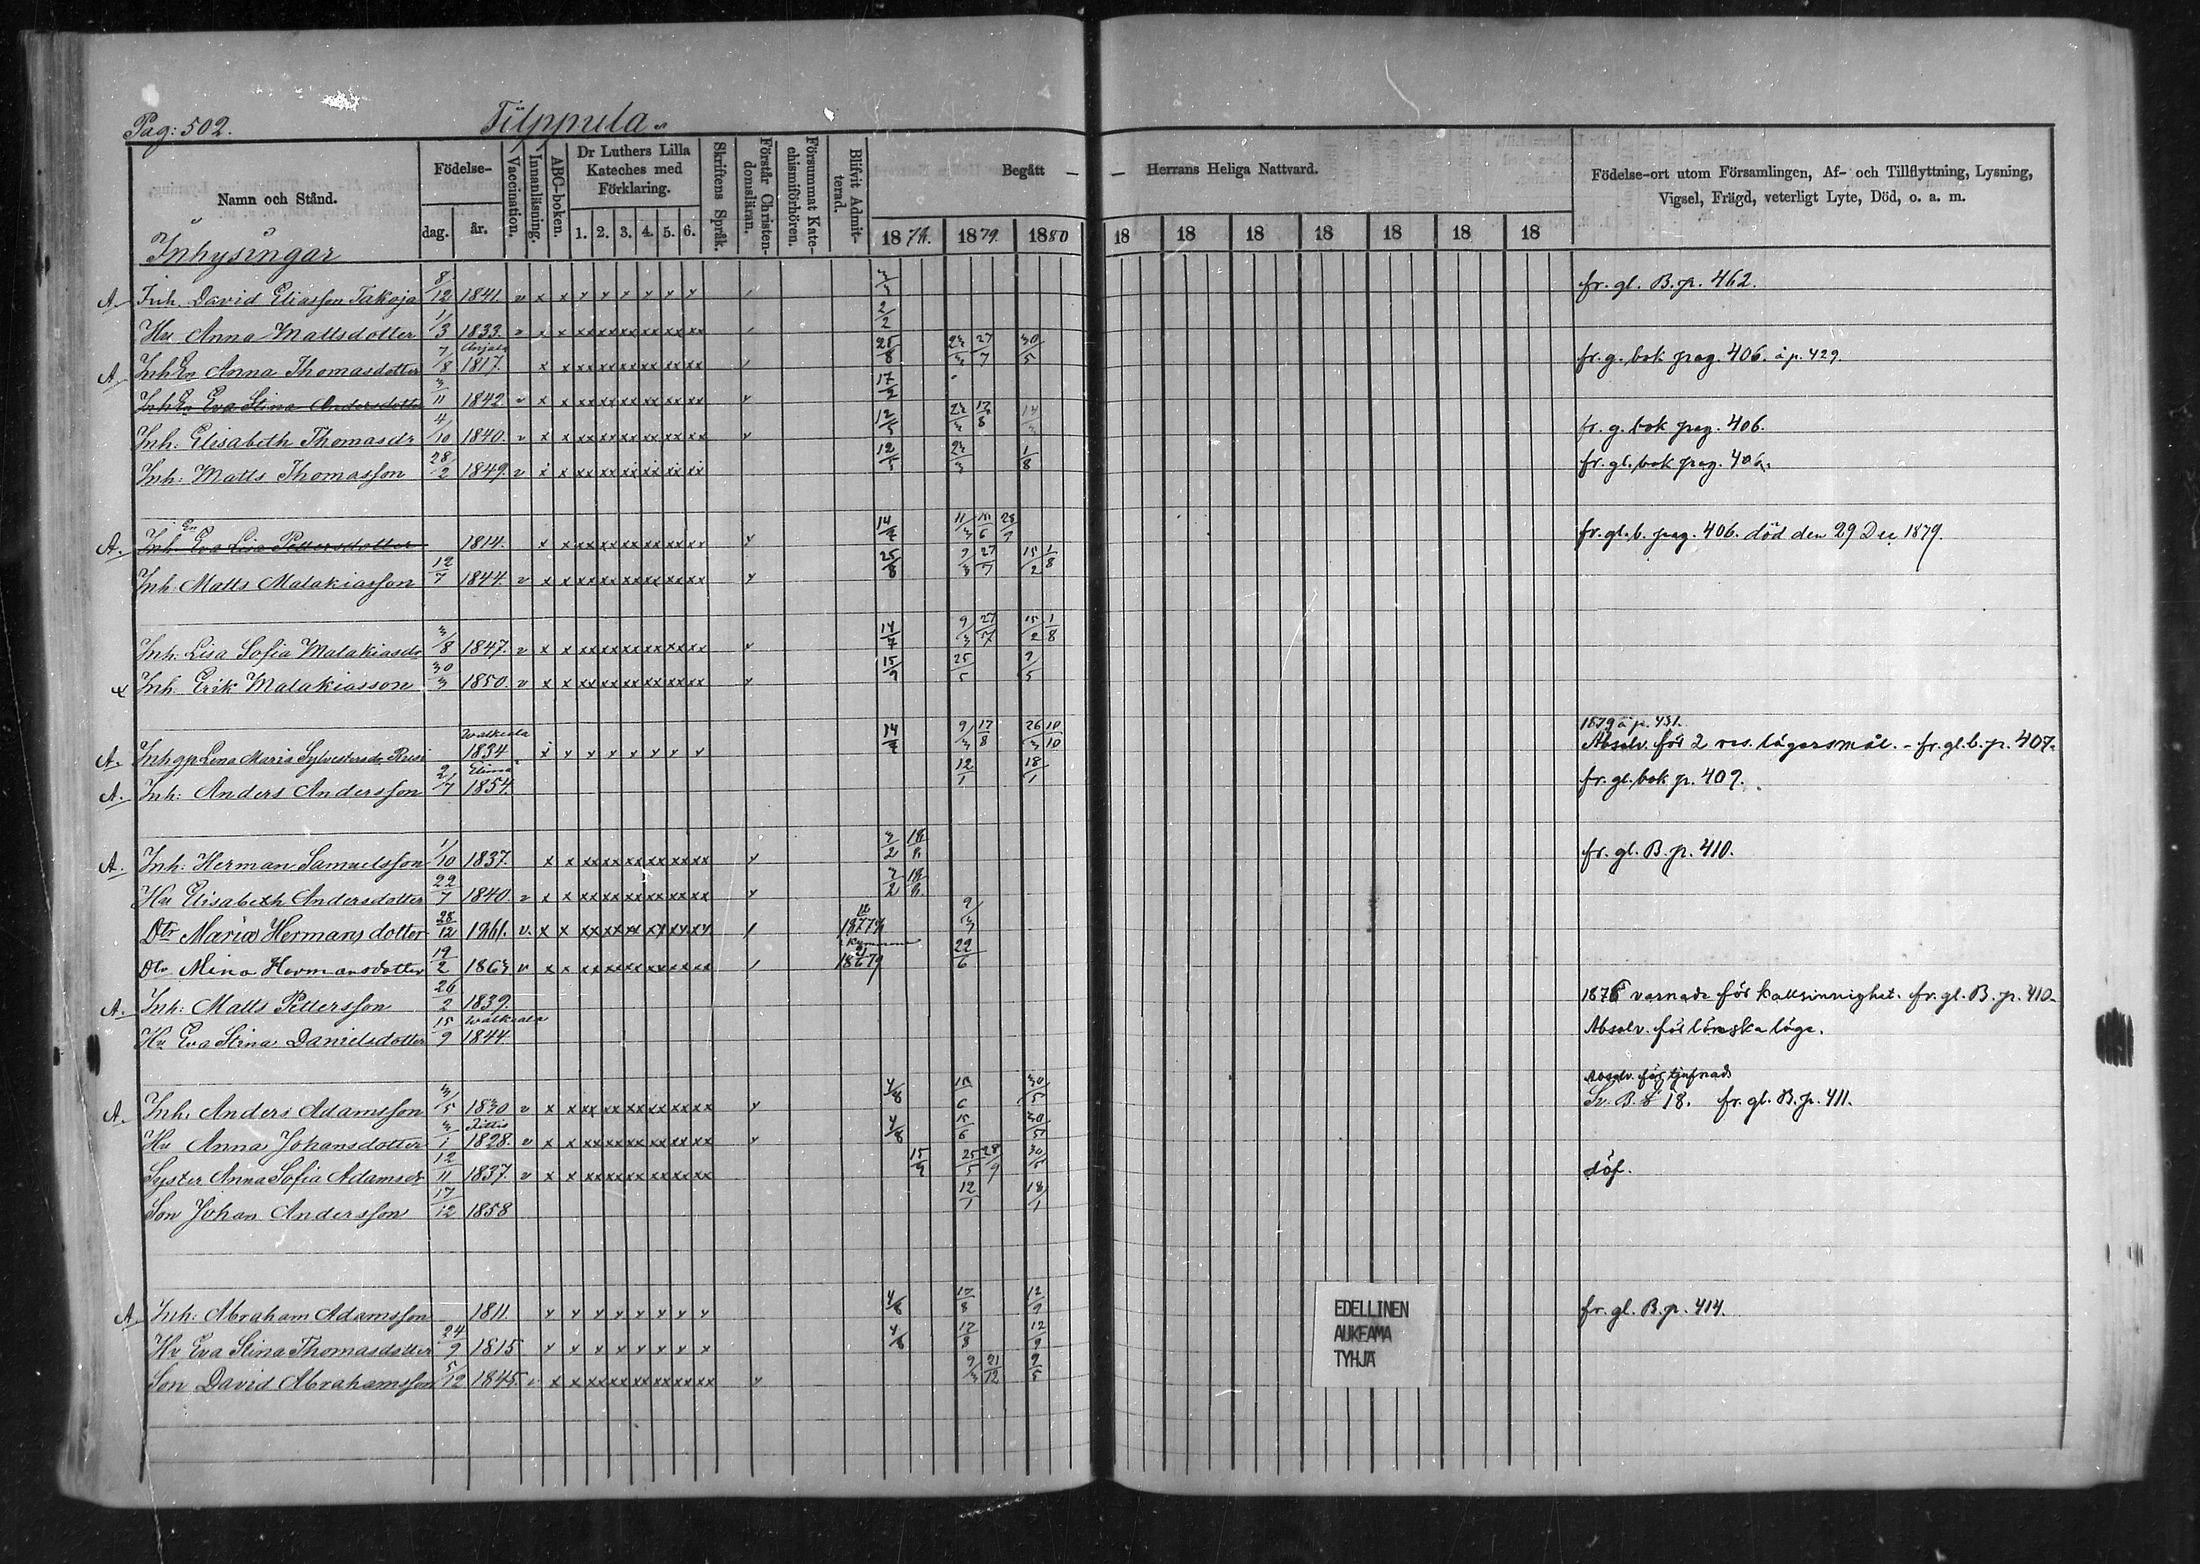 Pag: 502. Tilppula
Namn och Stånd. Födelse- dag. år. Vaccination. Innanläsning. ABC-boken. Dr Luthers Lilla Kateches med Förklaring. 1. 2. 3. 4. 5. 6. Skriftens Språk. Förstår Christendomsläran. Försummat Katechismiförhören. Blifvit Admitterad. Begått — — Herrans Heliga Nattvard. Födelse-ort utom Församlingen, Af- och Tillflyttning, Lysning, Vigsel, Frägd, veterligt Lyte, Död, o. a. m.
1878. 1879. 1880 18 18 18 18 18 18 18
Inhysingar
A. Inh. David Eliasson Takoja 8/12 1841. v x x x x x x x x fr. gl. B. p. 462.
Hu Anna Mattsdotter 1/3 1833. v x x xx xx xx xx xx xx 2/2
A. Inh En Anna Thomasdotter 7/8 Anjala 1817. x x xx xx xx xx xx xx 25/8 23/3 27/7 30/5 fr. g. bok pag. 406. à p. 429.
Inh En Eva Stina Andersdotter 3/11 1842 v x x xx xx xx xx xx xx 17/2
Inh: Elisabeth Thomasdr 4/10 1840. v x x xx xx xx xx xx xx 23/3 17/8 fr. g. bok pag. 406.
Inh: Matts Thomasson 28/2 1849. v x x xx xx xx xx xx xx 23/3 1/8 fr. gl. bok pag. 406.
A. Inh En Eva Lisa Pettersdotter 1814. x x xx xx xx xx xx xx fr. gl. b. pag. 406. död den 29 Dec 1879.
Inh. Matts Malakiasson 12/7 1844. v x x xx xx xx xx xx xx 25/8 9/3 27/7 15/2 1/8
Inh. Lisa Sofia Malakiasdr 3/8 1847. v x x xx xx xx xx xx xx 14/7 9/3 27/7 15/2 1/8
x Inh Erik Malakiasson 30/3 1850. v x x xx xx xx xx xx xx 15/9 25/5 9/5
1879 à p. 431.
A. Inh gp Lena Maria Sylvestersdr Walkeala 1834 x x x x x x x x 9/3 17/8 26/3 10/10 Absolv. för 2 res. lägersmål. - fr. gl. b. p. 407.
A. Inh: Anders Andersson 2/7 Elimä 1854. 12/1 18/1 fr. gl. bok p. 409.
A. Inh: Herman Samuelsson 1/10 1837. x x xx xx xx xx xx xx 3/2 fr. gl. B. p. 410.
Hu Elisabeth Andersdotter 22/7 1840. v x x xx xx xx xx xx xx 3/2
Dtr Maria Hermansdotter 28/12 1861. v. x x xx xx xx xx xx xx 9/3
Dtr Mina Hermansdotter 19/2 1863 v x x xx xx xx xx xx xx 22/6
A. Inh: Matts Pettersson 26/2 1839. 1876 varnade för kallsinnighet. fr. gl. B. p. 410.
Hu Eva Stina Danielsdotter 15/9 Walkeala 1844. Absolv. för lönskaläge.
Absolv. för tjufnad
A. Inh. Anders Adamsson 3/5 1830 v x x xx xx xx xx xx xx 4/8 15/6 30/5 Sv. B. § 18. fr. gl. B. p. 411.
Hu Anna Johansdotter 3/1 Jittis 1828. v x x xx xx xx xx xx xx 4/8 15/6 30/5
Syster Anna Sofia Adamsdr 12/11 1837. v x x xx xx xx xx xx xx 15/3 25/5 28/9 30/5 döf.
Son Johan Andersson 17/12 1858 12/1 18/1
A. Inh: Abraham Adamsson 1811. x x x x x x x x 4/8 17/8 12/9 fr. gl. B. p. 414.
Hu Eva Stina Thomasdotter 24/9 1815 x x x x x x x x 4/8 17/8 12/9
Son David Abrahamsson 5/12 1845. v x x xx xx xx xx xx xx 9/3 21/12 9/5
EDELLINEN
AUKEAMA
TYHJÄ